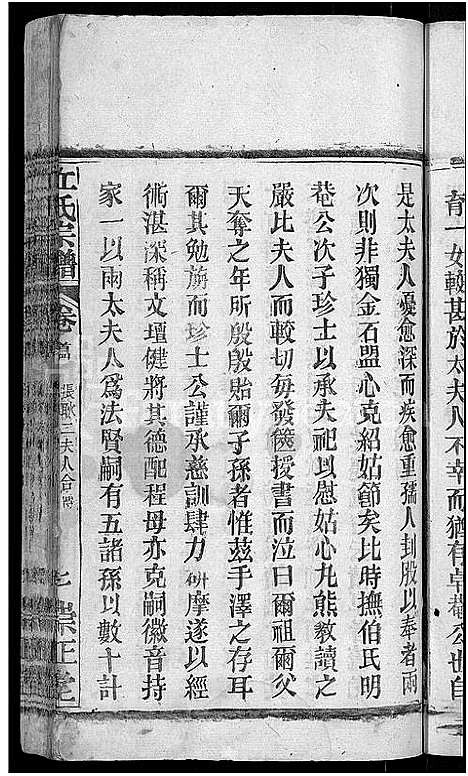 育一女較甚於太夫人不幸而猶有卓菴公也自
是太夫人憂愈深而疾愈重孺人刲股以奉者兩
次則非獨金石盟心克紹姑節矣比時撫伯氏明
菴公次子珍士以承夫祀以慰姑心九熊教讀之
嚴比夫人而較切每發篋授書而泣曰爾祖爾父
天奪之年所殷殷貽爾子孫者惟茲手澤之存耳
爾其勉旃而珍士公謹承慈訓肆力研摩遂以經
術湛深稱文壇健將其德配程母亦克嗣徽音持
家一以兩太夫人爲法賢嗣有五諸孫以數十計
丘氏宗譜 卷首 張耿二夫人合傳 七 崇正堂